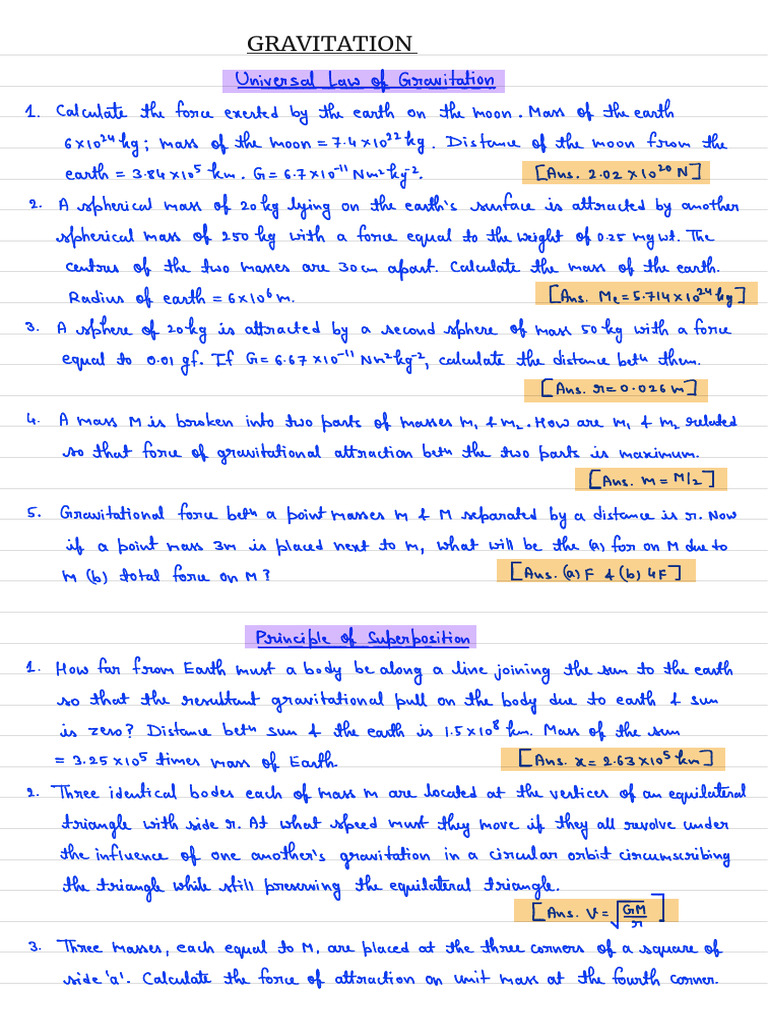 GRAVITATION
Universal Law of Gravitation
1. Calculate the force exerted by the earth on the moon. Mass of the earth
6×10²⁴ kg; mass of the moon = 7.4×10²² kg. Distance of the moon from the
earth = 3.84×10⁵ km. G = 6.7×10⁻¹¹ Nm²kg⁻². [Ans. 2.02 × 10²⁰ N]
2. A spherical mass of 20 kg lying on the earth's surface is attracted by another
spherical mass of 250 kg with a force equal to the weight of 0.25 mg wt. The
centres of the two masses are 30 cm apart. Calculate the mass of the earth.
Radius of earth = 6×10⁶ m. [Ans. Me = 5.714×10²⁴ kg]
3. A sphere of 20 kg is attracted by a second sphere of mass 50 kg with a force
equal to 0.01 gf. If G = 6.67×10⁻¹¹ Nm²kg⁻², calculate the distance betⁿ them.
[Ans. r = 0.026 m]
4. A mass M is broken into two parts of masses m₁ & m₂. How are m₁ & m₂ related
so that force of gravitational attraction betⁿ the two parts is maximum.
[Ans. m = M/2]
5. Gravitational force betⁿ a point masses m & M separated by a distance is r. Now
if a point mass 3m is placed next to m, what will be the (a) for on M due to
m (b) total force on M? [Ans. (a) F & (b) 4F]
Principle of Superposition
1. How far from Earth must a body be along a line joining the sun to the earth
so that the resultant gravitational pull on the body due to earth & sun
is zero? Distance betⁿ sun & the earth is 1.5×10⁸ km. Mass of the sun
= 3.25×10⁵ times mass of Earth. [Ans. x = 2.63×10⁵ km]
2. Three identical bodes each of mass M are located at the vertices of an equilateral
triangle with side r. At what speed must they move if they all revolve under
the influence of one another's gravitation in a circular orbit circumscribing
the triangle while still preserving the equilateral triangle.
[Ans. v = √(GM/r)]
3. Three masses, each equal to M, are placed at the three corners of a square of
side 'a'. Calculate the force of attraction on unit mass at the fourth corner.